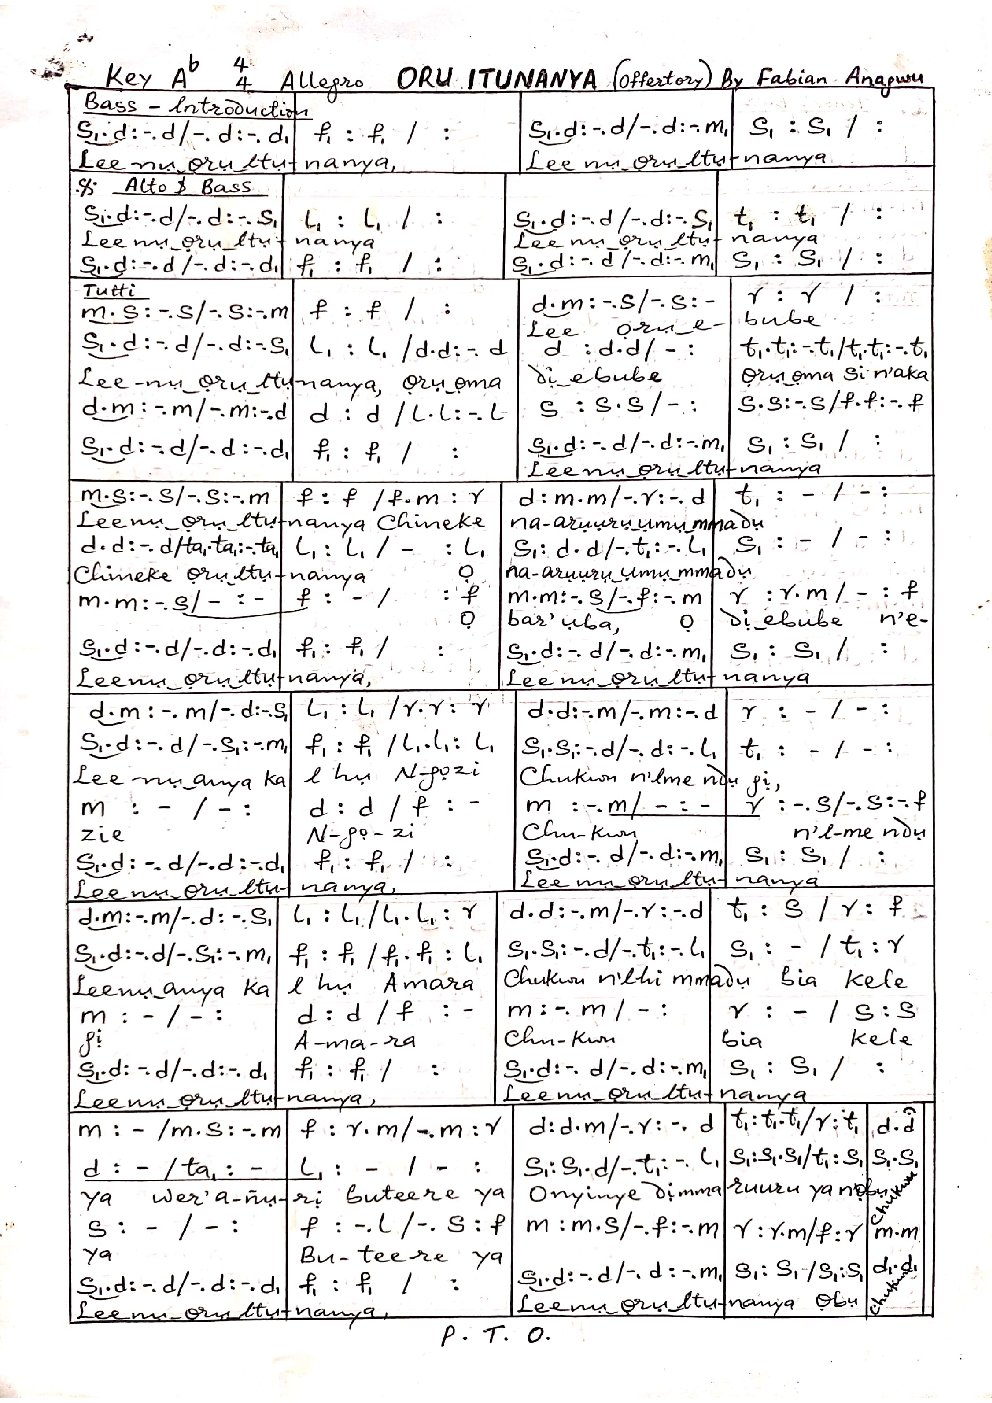 Key Aᵇ 4/4 Allegro ORU ITUNANYA (Offertory) By Fabian Anagwu
Bass – Introduction
S₁.d:-.d/-.d:-.d₁ f₁ : f₁ / : S₁.d:-.d/-.d:-.m₁ S₁ : S₁ / :
Lee nụ ọrụ Itu-nanya, Lee nụ ọrụ Itu-nanya
Alto & Bass
S₁.d:-.d/-.d:-.S₁ l₁ : l₁ / : S₁.d:-.d/-.d:-.S₁ t₁ : t₁ / :
Lee nụ ọrụ Itu-nanya Lee nụ ọrụ Itu-nanya
S₁.d:-.d/-.d:-.d₁ f₁ : f₁ / : S₁.d:-.d/-.d:-.m₁ S₁ : S₁ / :
Tutti
m.S:-.S/-.S:-.m f : f / : d.m:-.S/-.S:- r : r / :
Lee ọrụ e- bube
S₁.d:-.d/-.d:-.S₁ l₁ : l₁ /d.d:-.d d :d.d/-: t₁.t₁:-.t₁/t₁.t₁:-.t₁
Lee-nụ ọrụ Itu-nanya, ọrụ ọma dị ebube ọrụ ọma si n'aka
d.m:-.m/-.m:-.d d : d /l.l:-.l S : S.S/-: S.S:-.S/f.f:-.f
S₁.d:-.d/-.d:-.d₁ f₁ : f₁ / : S₁.d:-.d/-.d:-.m₁ S₁ : S₁ / :
Lee nụ ọrụ Itu-nanya
m.S:-.S/-.S:-.m f : f /f.m : r d:m.m/-.r:-.d t₁ : - / - :
Leenụ ọrụ Itu-nanya Chineke na-arụụrụ ụmụ mmadụ
d.d:-.d/ta₁.ta₁:-.ta₁ l₁ : l₁ / - : l₁ S₁: d.d/-.t₁:-.l₁ S₁ : - / - :
Chineke ọrụ Itu-nanya Ọ na-arụụrụ ụmụ mmadụ
m.m:-.S/- : - f : - / : f m.m:-.S/-.f:-.m r :r.m/ - : f
Ọ bar'ụba, Ọ dị ebube n'e-
S₁.d:-.d/-.d:-.d₁ f₁ : f₁ / : S₁.d:-.d/-.d:-.m₁ S₁ : S₁ / :
Leenụ ọrụ Itu-nanya, Leenụ ọrụ Itu-nanya
d.m:-.m/-.d:-.S₁ l₁ : l₁ /r.r: r d.d:-.m/-.m:-.d r : - / - :
S₁.d:-.d/-.S₁:-.m₁ f₁ : f₁ /l₁.l₁: l₁ S₁.S₁:-.d/-.d:-.l₁ t₁ : - / - :
Lee nụ anya ka I hụ N-gọzi Chukwu n'Ime ndu gị,
m : - / - : d : d / f : - m :-.m/ - : - r :-.S/-.S:-.f
zie N-gọ-zi Chu-kwu n'I-me ndụ
S₁.d:-.d/-.d:-.d₁ f₁ : f₁ / : S₁.d:-.d/-.d:-.m₁ S₁ : S₁ / :
Lee nụ ọrụ Itu-nanya, Lee nụ ọrụ Itu-nanya
d.m:-.m/-.d:-.S₁ l₁ : l₁/l₁.l₁: r d.d:-.m/-.r:-.d t₁ : S / r : f
S₁.d:-.d/-.S₁:-.m₁ f₁ : f₁ /f₁.f₁: l₁ S₁.S₁:-.d/-.t₁:-.l₁ S₁ : - / t₁ : r
Leenụ anya ka I hụ Amara Chukwu n'Ihi mmadụ bia kele
m : - / - : d : d / f : - m:-.m / - : r : - / S : S
gị A-ma-ra Chu-kwu bia kele
S₁.d:-.d/-.d:-.d₁ f₁ : f₁ / : S₁.d:-.d/-.d:-.m₁ S₁ : S₁ / :
Leenụ ọrụ Itu-nanya, Leenụ ọrụ Itu-nanya
m : - /m.S:-.m f : r.m/-.m : r d:d.m/-.r:-.d t₁:t₁.t₁/r:t₁ d.d
d : - /ta₁ : - l₁ : - / - : S₁:S₁.d/-.t₁:-.l₁ S₁:S₁.S₁/t₁:S₁ S₁.S₁
ya wer'a-ñu-rị buteere ya Onyinye dimma ruuru ya n'obu Chukwu
S : - / - : f :-.l/-.S:f m:m.S/-.f:-.m r:r.m/f:r m.m
ya Bu-teere ya
S₁.d:-.d/-.d:-.d₁ f₁ : f₁ / : S₁.d:-.d/-.d:-.m₁ S₁: S₁/S₁:S₁ d₁.d₁
Leenụ ọrụ Itu-nanya, Leenụ ọrụ Itu-nanya Obu Chukwu
P. T. O.